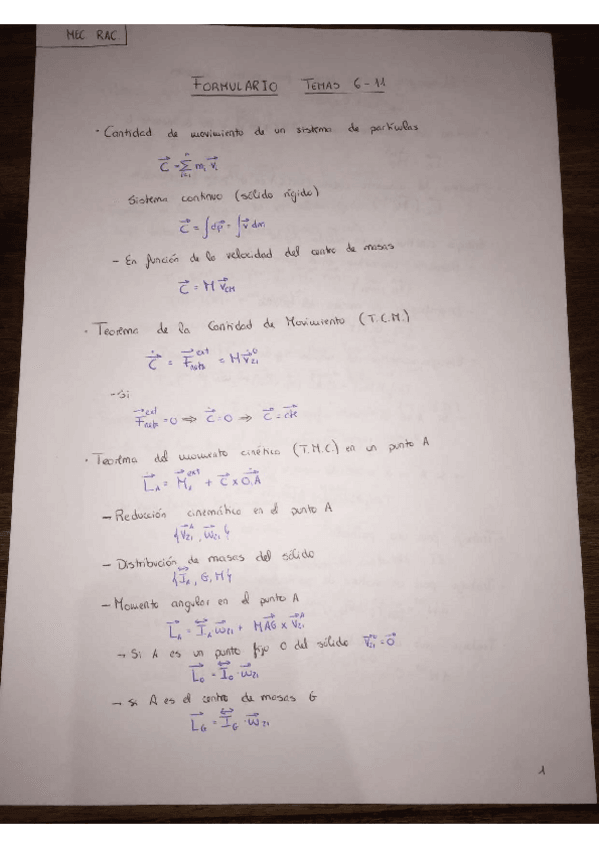 MEC RAC
FORMULARIO TEMAS 6-11
· Cantidad de movimiento de un sistema de partículas
C⃗ = Σᵢ₌₁ⁿ mᵢ v⃗ᵢ
Sistema continuo (sólido rígido)
C⃗ = ∫dp⃗ = ∫v⃗ dm
- En función de la velocidad del centro de masas
C⃗ = M v⃗_CM
· Teorema de la Cantidad de Movimiento (T.C.M.)
- Si
· Teorema del momento cinético (T.M.C.) en un punto A
- Reducción cinemática en el punto A
{v⃗₂₁ᴬ, ω⃗₂₁}
- Distribución de masas del sólido
{I_A, G, M}
- Momento angular en el punto A
L⃗_A = I_A ω⃗₂₁ + M AG⃗ x v⃗₂₁ᴬ
→ Si A es un punto fijo O del sólido v⃗₂₁ᴼ = 0⃗
L⃗_O = I_O · ω⃗₂₁
→ si A es el centro de masas G
L⃗_G = I_G · ω⃗₂₁
1